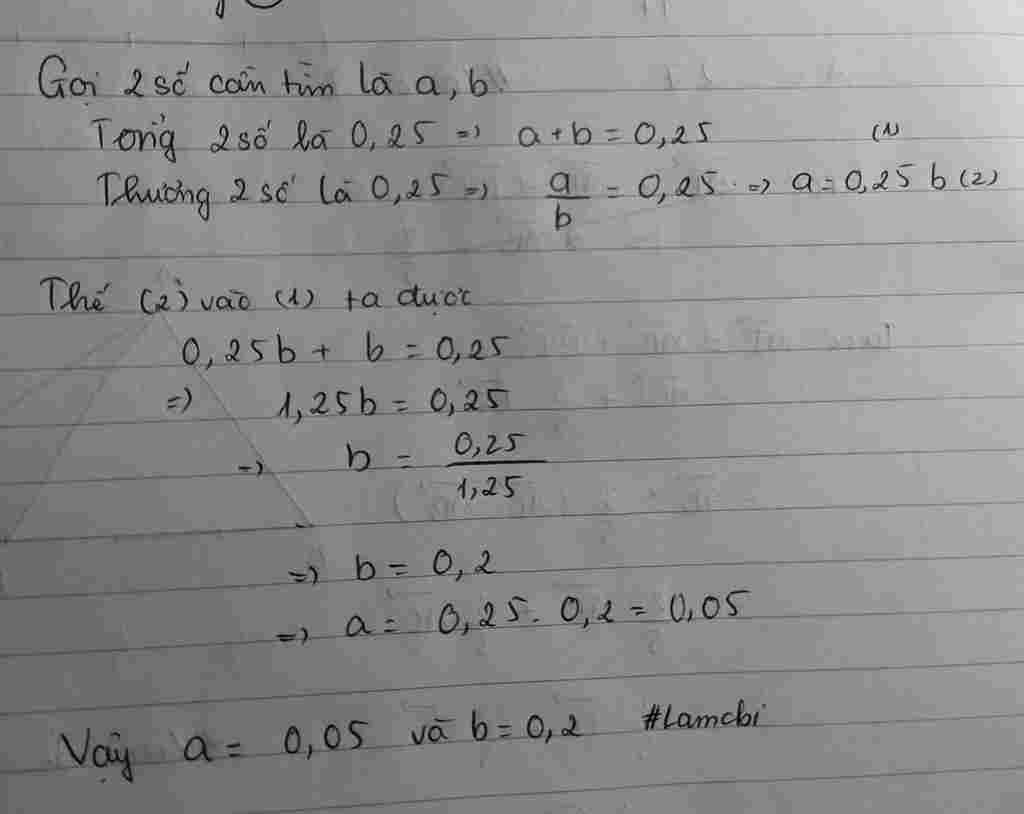 Gọi 2 số cần tìm là a, b
Tổng 2 số là 0,25 => a + b = 0,25 (1)
Thương 2 số là 0,25 => a/b = 0,25 => a = 0,25 b (2)
Thế (2) vào (1) ta được
0,25b + b = 0,25
=> 1,25b = 0,25
=> b = 0,25/1,25
=> b = 0,2
=> a = 0,25 . 0,2 = 0,05
Vậy a = 0,05 và b = 0,2 #Lamcbi